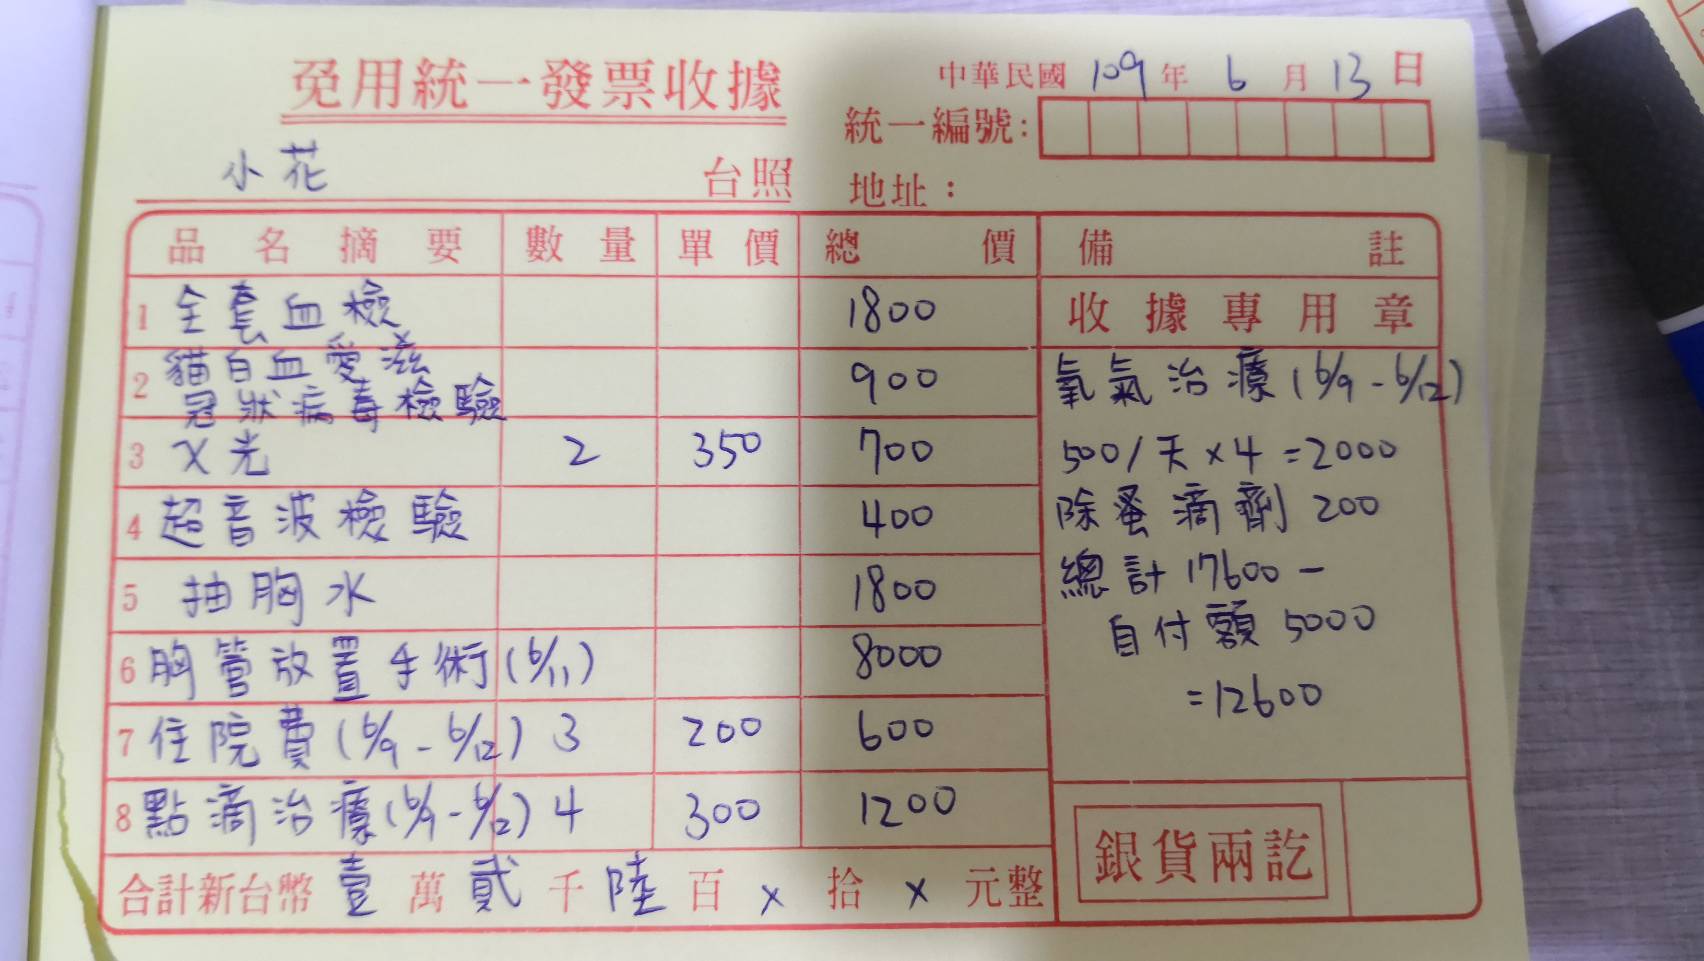 免用統一發票收據
中華民國 109 年 6 月 13 日
統一編號:
小花 台照
地址:
品名摘要 數量 單價 總價 備註
1 全套血檢 1800
收據專用章
2 貓白血愛滋
冠狀病毒檢驗 900
3 X光 2 350 700
4 超音波檢驗 400
5 抽胸水 1800
6 胸管放置手術(6/11) 8000
7 住院費(6/9-6/12) 3 200 600
8 點滴治療(6/9-6/12) 4 300 1200
氧氣治療(6/9-6/12)
500/天×4=2000
除蚤滴劑 200
總計 17600-
自付額 5000
=12600
合計新台幣 壹 萬 貳 千 陸 百 × 拾 × 元整
銀貨兩訖